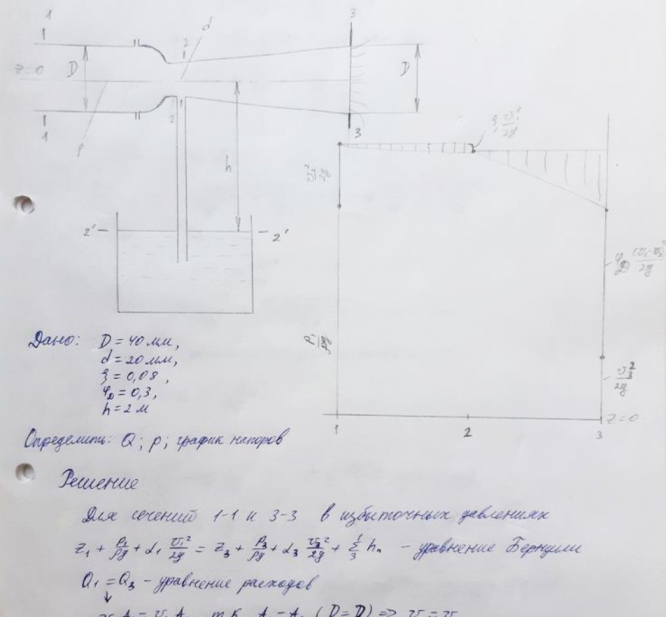 1
3
d
2
z=0
D
D
1
2
1
3
p
h
2'
2'
1
2
3
z=0
Дано: D = 40 мм,
d = 20 мм,
ξ = 0,08,
φ_D = 0,3,
h = 2 м
Определить: Q; p; график напоров
Решение
Для сечений 1-1 и 3-3 в избыточных давлениях
z₁ + p₁/ρg + α₁ v₁²/2g = z₃ + p₃/ρg + α₃ v₃²/2g + Σ hₙ - уравнение Бернулли
Q₁ = Q₃ - уравнение расходов
т.к. A₁ = A₃ (D = D) =>